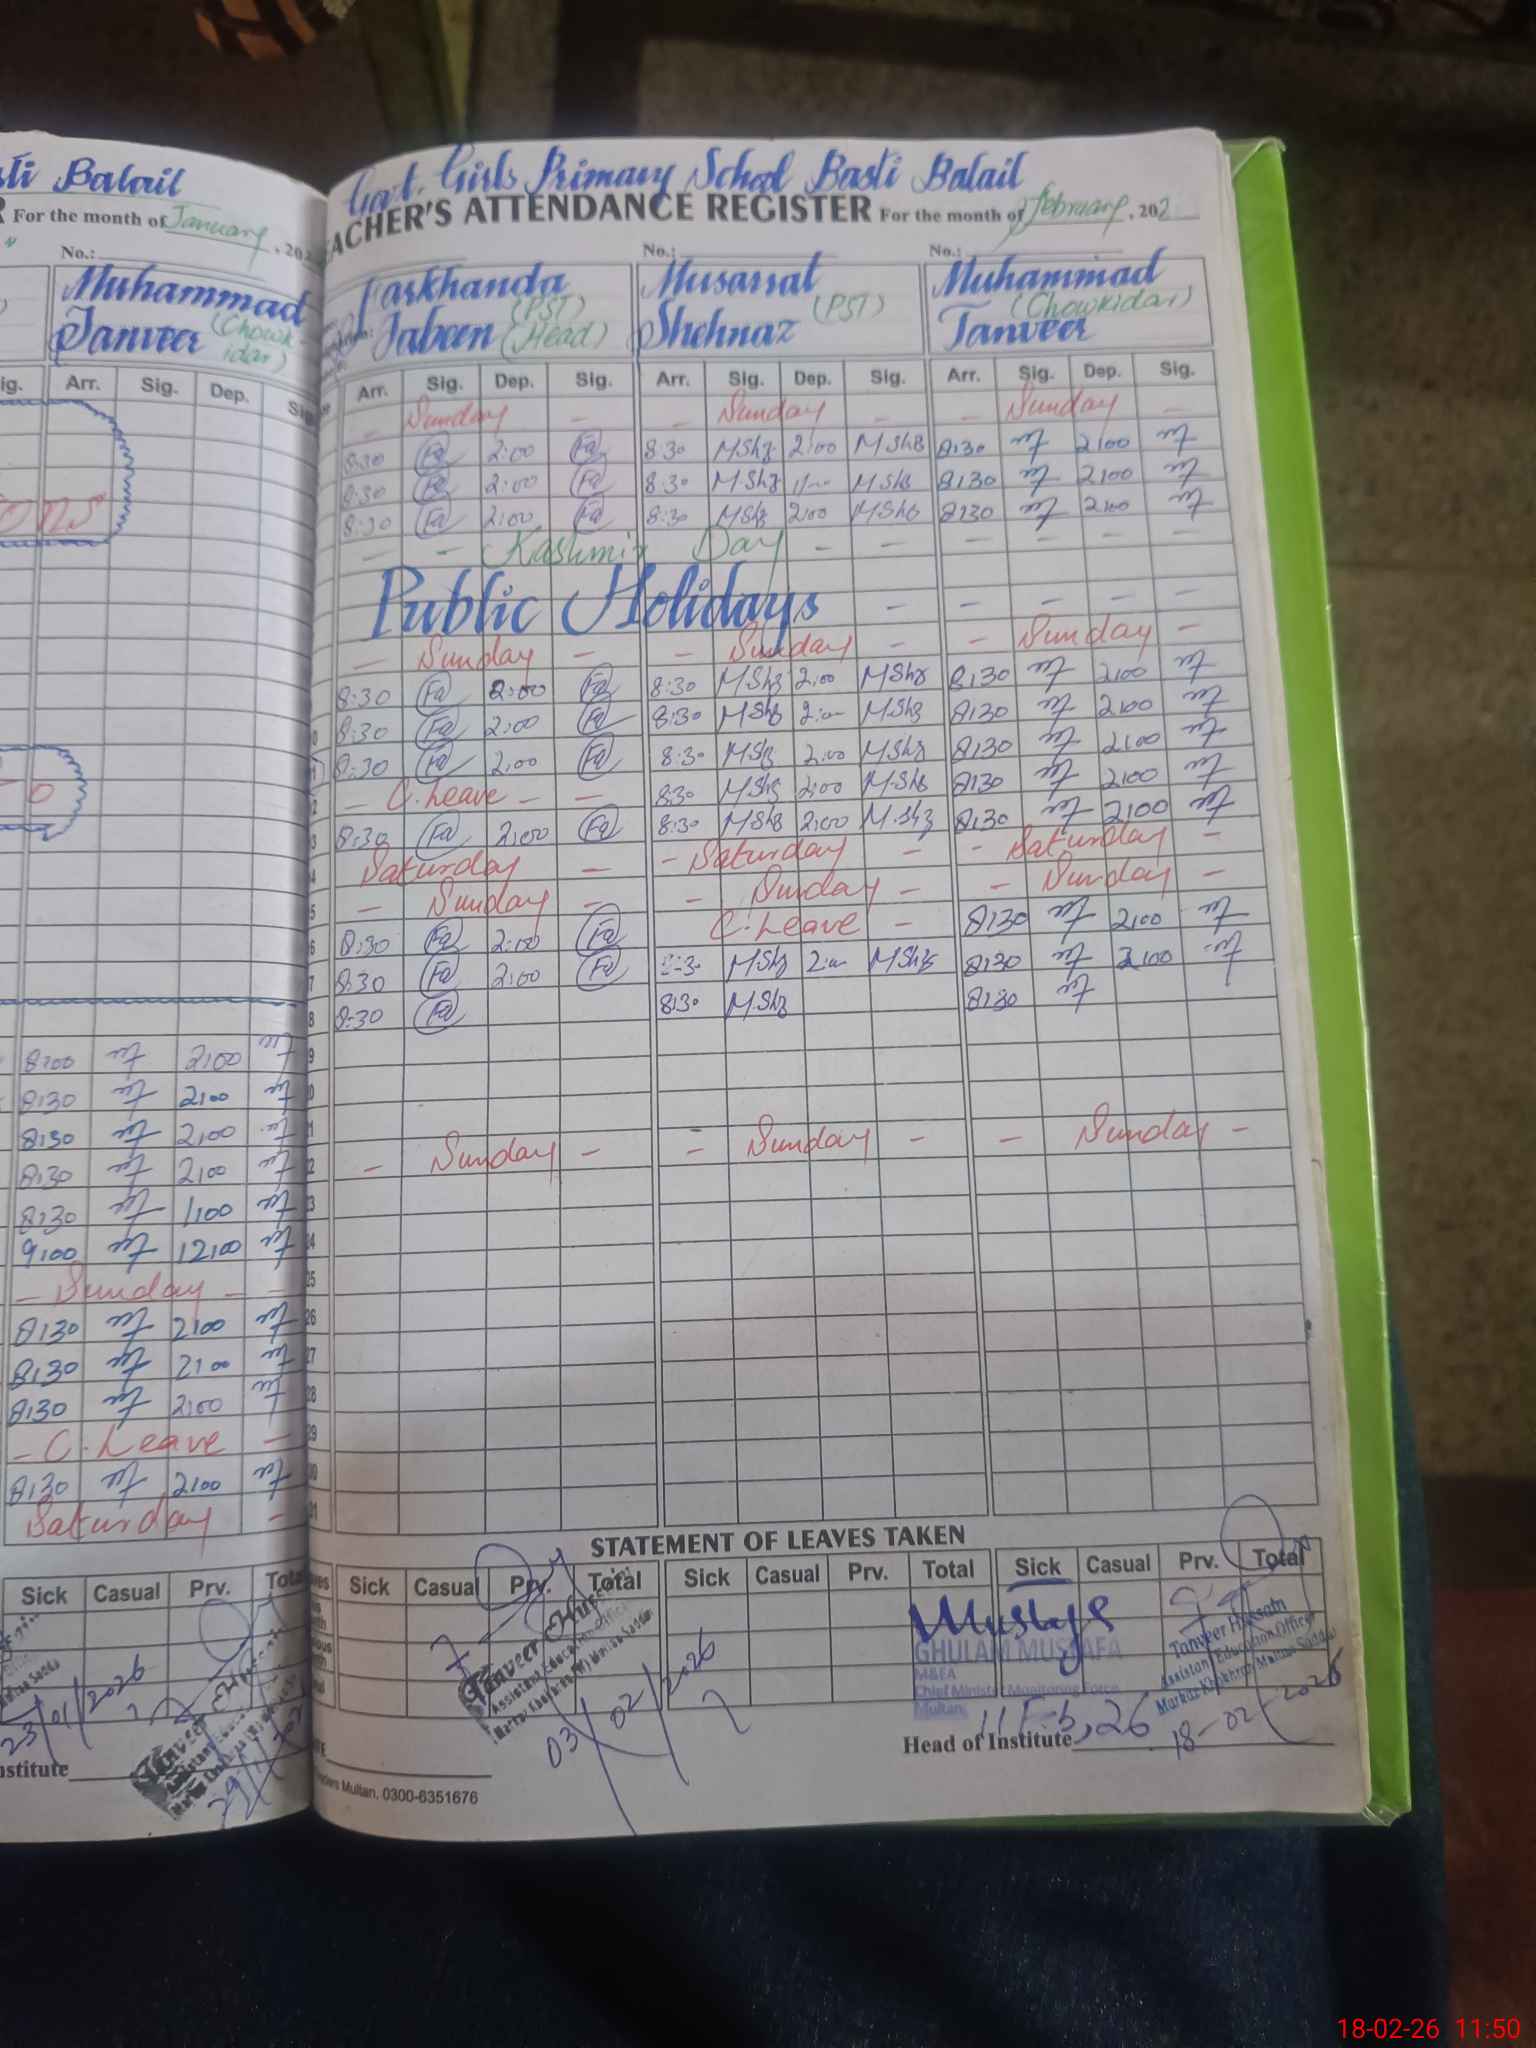 sti Balail
For the month of January, 202
No.:
Muhammad
Tanveer (Chowk-
idar)
ig. Arr. Sig. Dep. Sig
8:00 2:00
8:30 2:00
8:30 2:00
8:30 2:00
8:30 1:00
9:00 12:00
- Sunday -
8:30 2:00
8:30 2:00
8:30 2:00
- C. Leave -
8:30 2:00
Saturday -
Sick Casual Prv. Total
23/01/2026
nstitute
Govt. Girls Primary School Basti Balail
ACHER'S ATTENDANCE REGISTER For the month of February, 202
No.: No.:
Farkhanda Jabeen (PST) (Head)
Musarrat Shehnaz (PST)
Muhammad Tanveer (Chowkidar)
Arr. Sig. Dep. Sig. Arr. Sig. Dep. Sig. Arr. Sig. Dep. Sig.
- Sunday - - Sunday - - Sunday -
8:30 Fa 2:00 Fa 8:30 MShz 2:00 MShz 8:30 2:00
8:30 Fa 2:00 Fa 8:30 MShz MShz 8:30 2:00
8:30 Fa 2:00 Fa 8:30 MShz 2:00 MShz 8:30 2:00
- - Kashmir Day - - - - - -
Public Holidays - - - - -
- Sunday - - Sunday - - Sunday -
8:30 Fa 2:00 Fa 8:30 MShz 2:00 MShz 8:30 2:00
8:30 Fa 2:00 Fa 8:30 MShz 2:00 MShz 8:30 2:00
8:30 Fa 2:00 Fa 8:30 MShz 2:00 MShz 8:30 2:00
- C. Leave - - 8:30 MShz 2:00 M.Shz 8:30 2:00
8:30 Fa 2:00 Fa 8:30 MShz 2:00 M.Shz 8:30 2:00
Saturday - - Saturday - - Saturday -
- Sunday - - Sunday - - Sunday -
8:30 Fa 2:00 Fa C. Leave - 8:30 2:00
8:30 Fa 2:00 Fa 8:30 MShz 2:00 MShz 8:30 2:00
8:30 Fa 8:30 M.Shz 8:30
- Sunday - - Sunday - - Sunday -
25
26
27
28
29
STATEMENT OF LEAVES TAKEN
Sick Casual Prv. Total Sick Casual Prv. Total Sick Casual Prv. Total
Tanveer Hussain
Assistant Education Officer
03/02/2026
GHULAM MUSTAFA
M&EA
Chief Minister Monitoring Force
Multan
11 Feb, 26
Tanveer Hussain
Assistant Education Officer
18-02-2026
Head of Institute
Multan. 0300-6351676
18-02-26 11:50